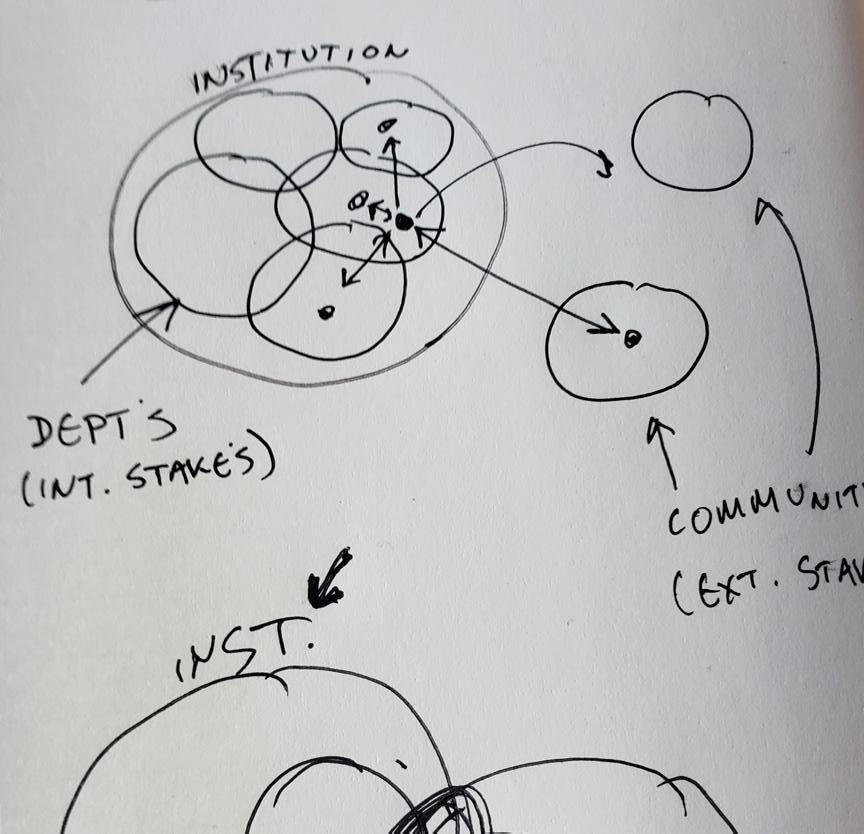 INSTITUTION
DEPT'S
(INT. STAKE'S)
COMMUNIT
(EXT. STAK
INST.